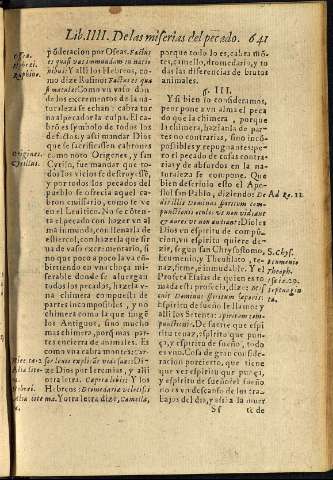 Lib. IIII. De las miserias del pecado. 641
põderacion por Oseas. Factus
est quasi vas immundum in natio
nibus: Y alli los Hebreos, co-
mo dize Rufino: Factus est qua
si matula: Como vn vaso don
de los excrementos de la na-
turaleza se echan: cabra tam
na al pecador la culpa. El ca-
brõ es symbolo de todos los
defectos, assi mandar Dios
que se sacrificassen cabrones
como noto Origenes, y san
Cyrilo, fue mandar que to-
dos los vicios se destruyessẽ,
y por todos los pecados del
pueblo se ofrecia aquel ca-
bron emissario, como se ve
en el Leuitico. No se cõten-
ta el pecado con hazer vn al
ma inmunda, con llenarla de
estiercol, con hazerla que sir
na de vaso excrementario, si
no que poco a poco la va cõ-
uirtiendo en vna chimera mi-
serable donde se alvergan
todos los pecados, hazela v-
na chimera compuesta de
partes incompossibles, y no
chimera como la que fingiẽ
los Antiguos, sino mucho
mas chimera, porq̃ mas par-
tes encierra de animales. Es
como vna cabra montes:
ze Dios por Ieremias, y alli
otra letra. Capera leuis: Y los
Hebreos: Dromedaria velox:
Y otra letra dize, Camella,
porque todo lo es, cabra mõ-
tes, camello, dromedario, y to
das las diferencias de brutos
animales.
§. III.
Y si bien lo consideramos,
peor pone a vn alma el peca-
do que la chimera, porque
la chimera, hazianla de par-
tes no contrarias, sino inco-
possibles, y repugnantes: pe-
ro el pecado de cosas contra-
rias, y de absurdos en la na-
turaleza se compone. Que
bien descriuio esto el Apo-
stol san Pablo, diziendo: De
dit illis Dominus spiritum com-
punctionis oculos vt non videant
& aures vt non audiant: Dioles
Dios vn espiritu de compũ-
cion, vn espiritu quiere de-
zir, segun san Chrysostomo,
Ecumenio, Theophilato, te-
naz, firme, è inmudable. Y el
Profeta Esaias de quien es to
mada esta profecia, dize: Mis-
cuit Dominus spiritum soporis:
Espiritu de sueño le llama: y
alli los Setenta: spiritum com-
punctionis: De suerte que espi-
ritu tenaz, espiritu que punça,
y espiritu de sueño, todo
es vno. Cosa de gran conside-
racion por cierto, que tiene
que ver espiritu que punça,
y espiritu de sueño? el sueño
no es vn descanso de los tra-
bajos del dia, y assi a la muer
Sf te de
Osea.
Hebrei.
Ruphino.
Origines.
Cyrillus.
Hebrei.
Ad Ro. 11.
S. Chys.
Ecumenio
Theoph.
Septuagin
ta.